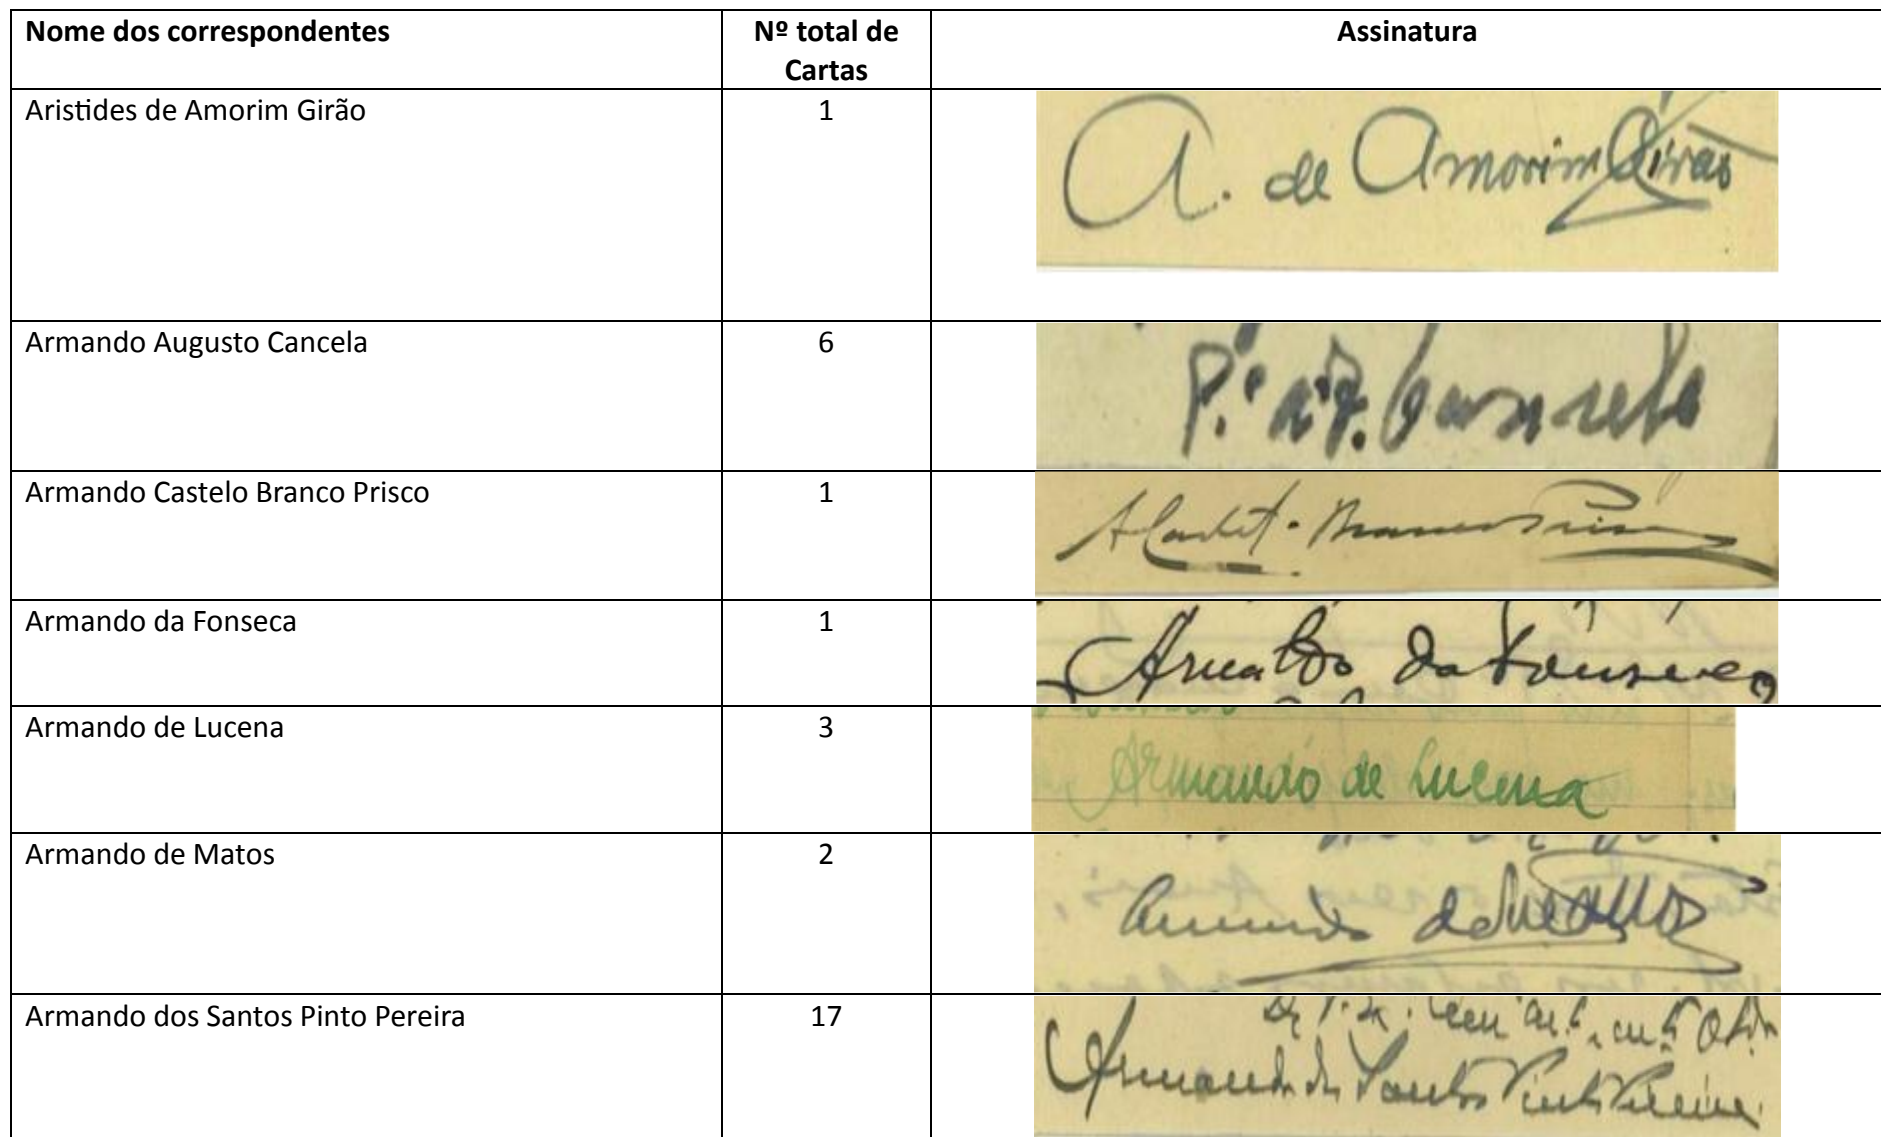 Nome dos correspondentes
Nº total de
Cartas
Assinatura
Aristides de Amorim Girão
1
A. de Amorim Girão
Armando Augusto Cancela
6
P.e A. Cancela
Armando Castelo Branco Prisco
1
A Castel. Branco Prisco
Armando da Fonseca
1
Arnaldo da Fonseca
Armando de Lucena
3
Armando de Lucena
Armando de Matos
2
Armando de Mattos
Armando dos Santos Pinto Pereira
17
Armando dos Santos Pinto Pereira